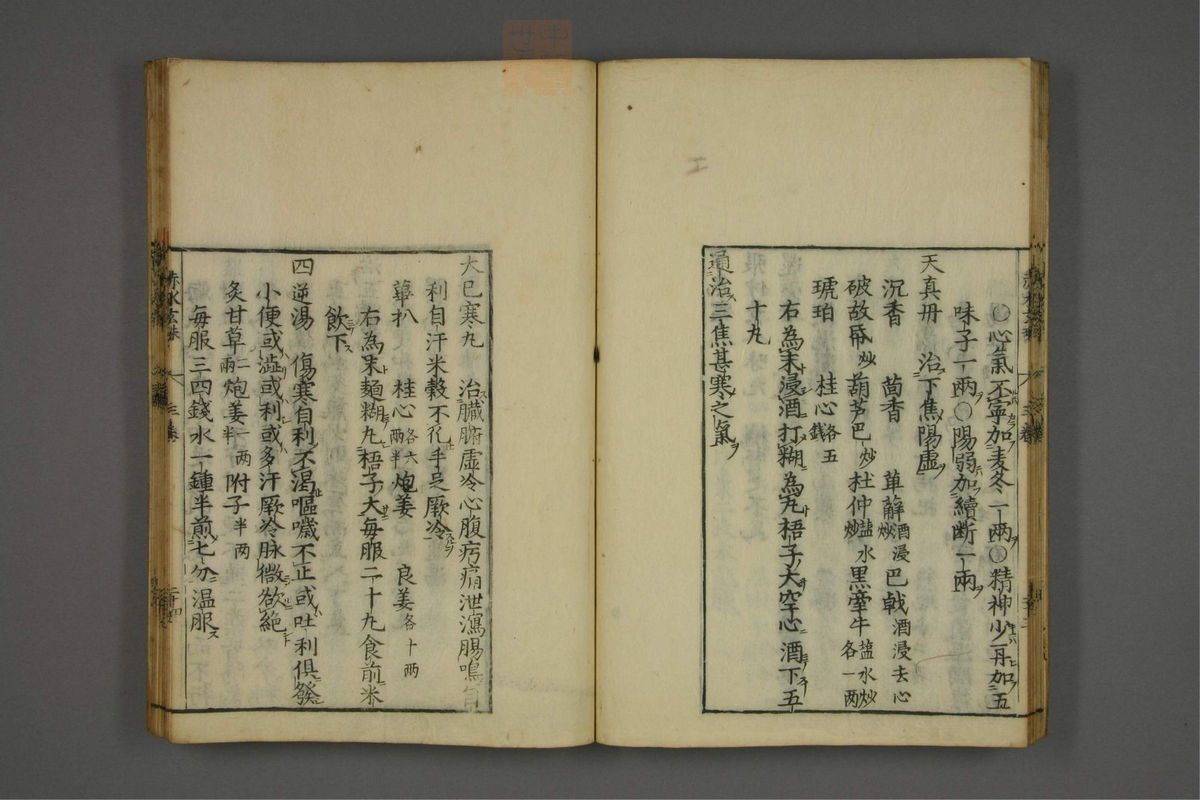 ○心氣不寧加麦冬二兩○精神少再加五
味子一兩○陽弱加續斷一兩
天真丹　治下焦陽虛
沉香　茴香　萆薢酒浸炒巴戟酒浸去心
破故昏炒葫芦巴炒杜仲塩水炒黑牽牛塩水炒各一兩
琥珀　桂心各五錢
右為末浸酒打糊為丸梧子大空心酒下五
十丸
通治三焦甚寒之氣
大巳寒丸　治臓腑虛冷心腹㽲痛泄瀉腸鳴自
利自汗米穀不化手足厥冷
蓽扒　桂心各六兩半炮姜　良姜各十兩
右為末麺糊丸梧子大每服二十丸食前米
飲下
四逆湯　傷寒自利不渴嘔噦不止或吐利俱發
小便或澁或利或多汗厥冷脉微欲絕
炙甘草二兩炮姜一兩半附子半兩
每服三四錢水一鍾半煎七分温服